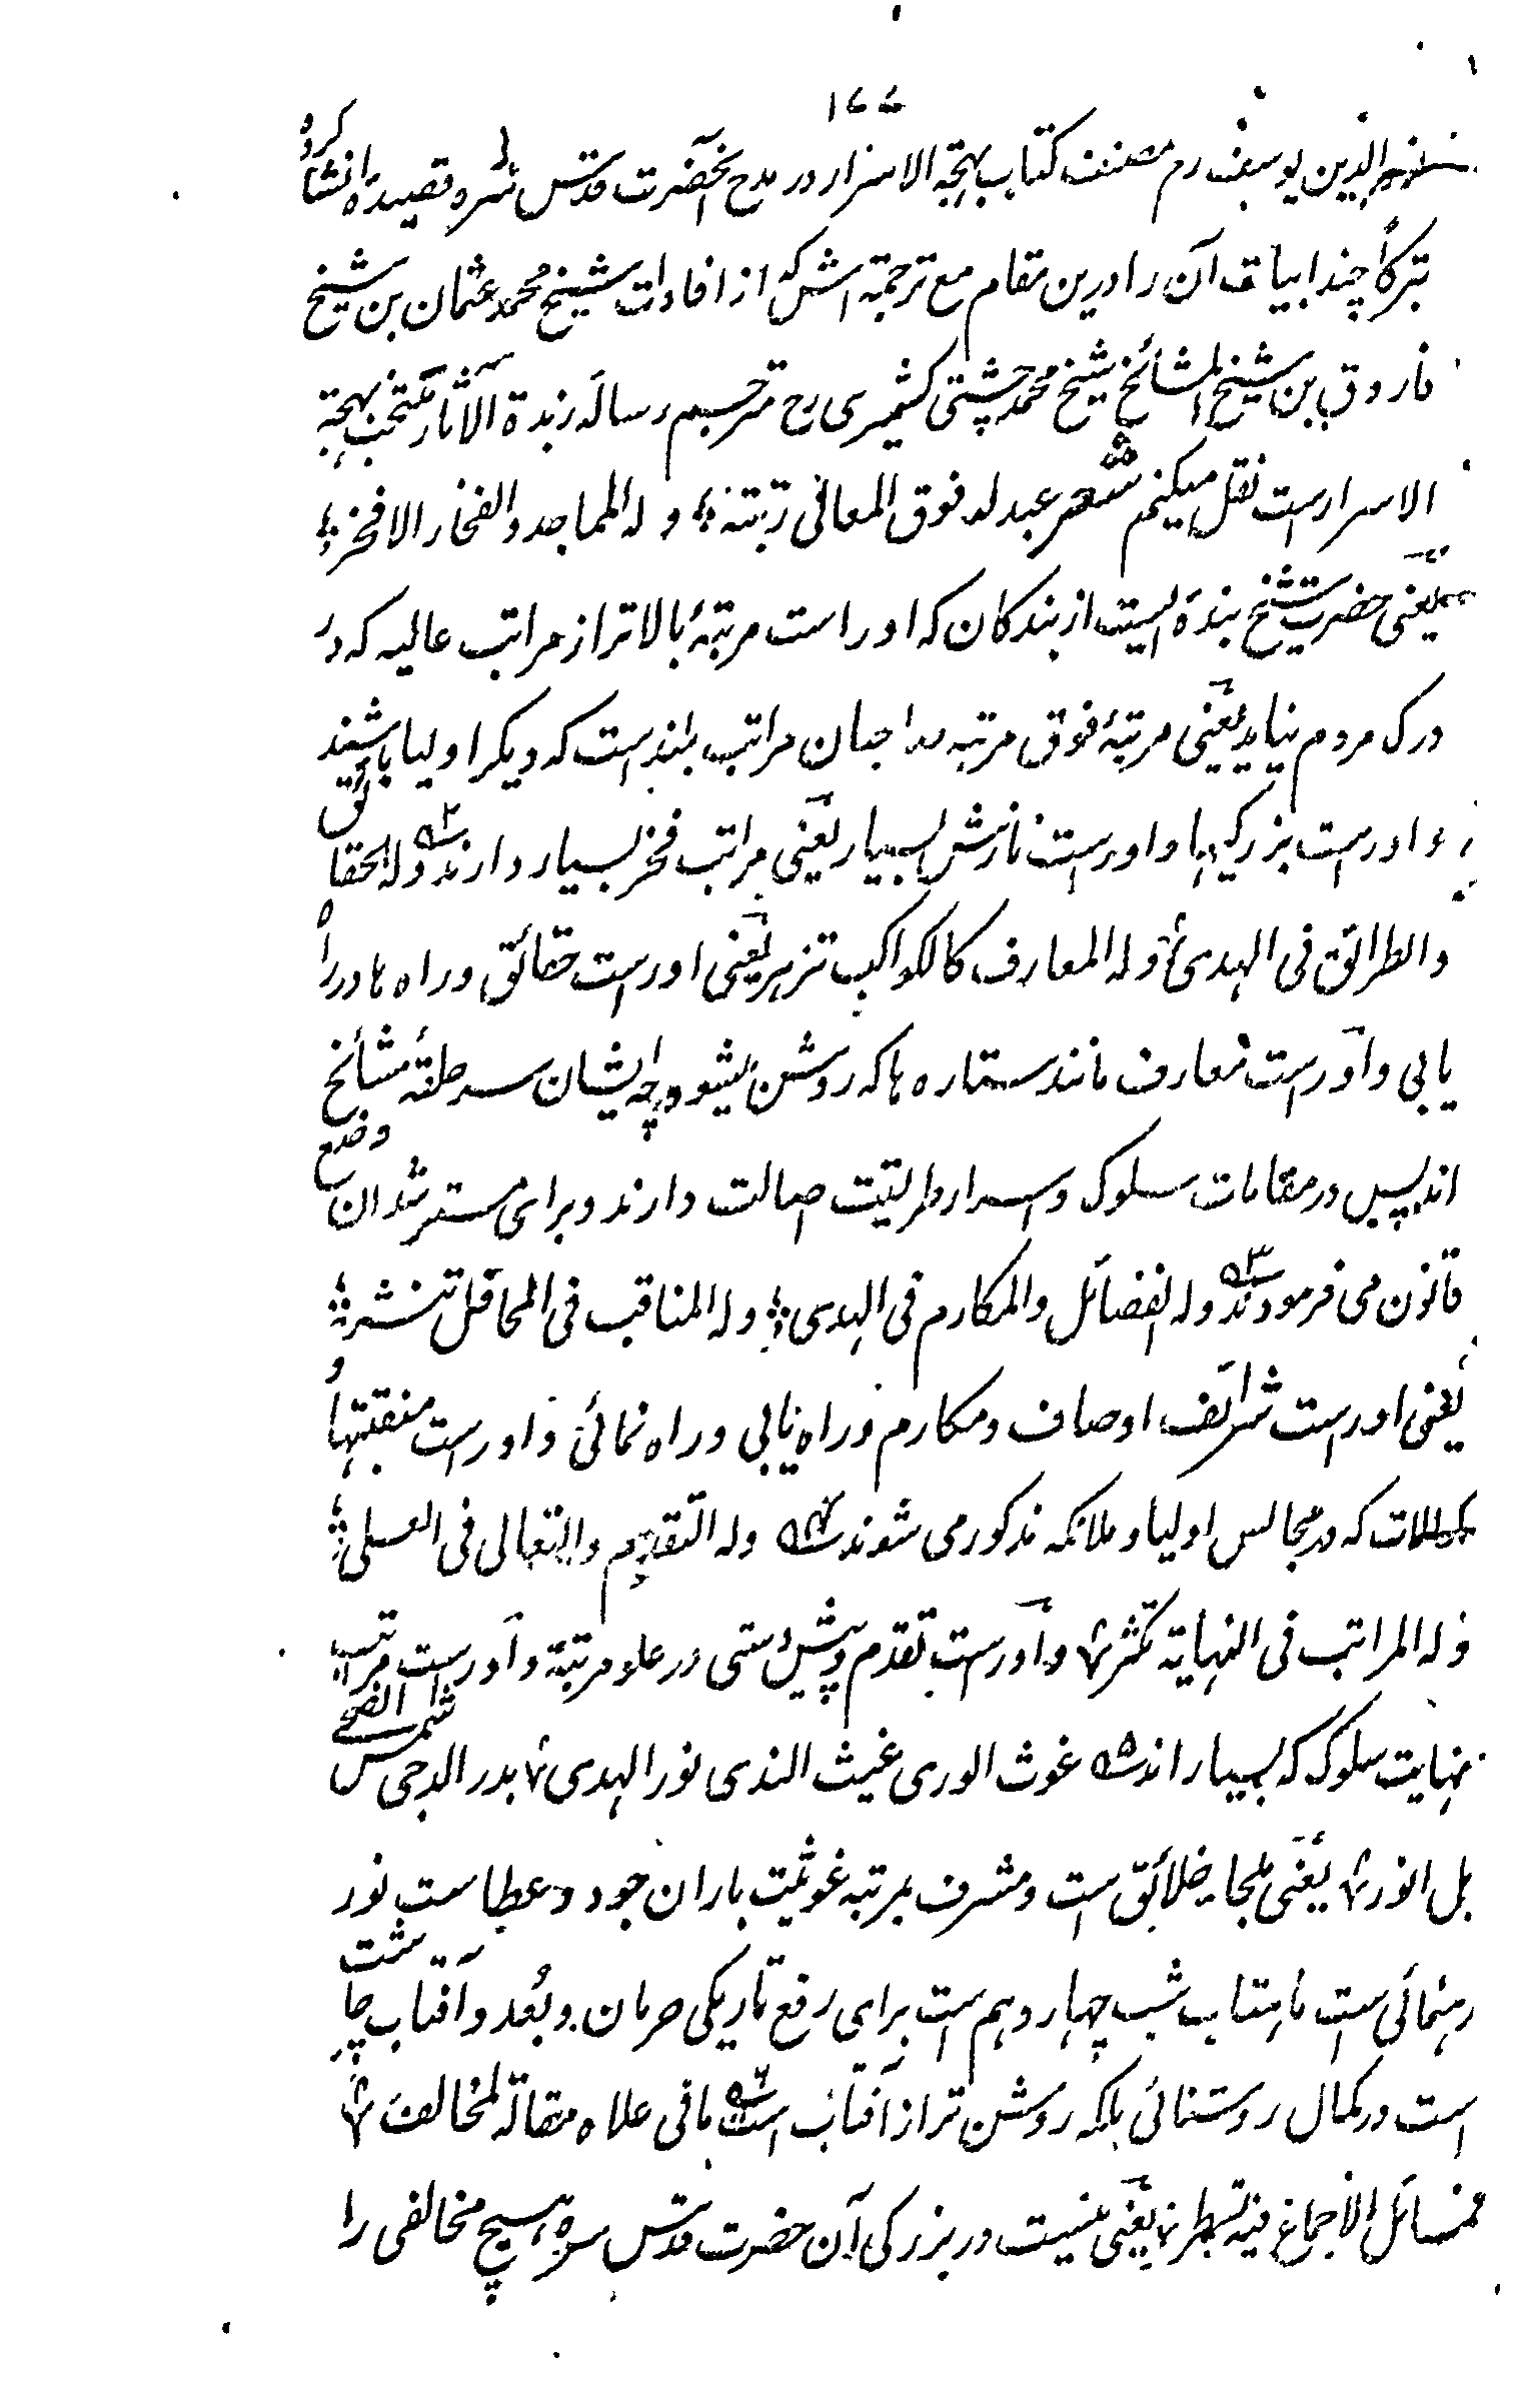 ۱۶۶
الدین یوسف رح مصنف کتاب بهجة الاسرار در مدح آنحضرت قدس سره قصیدهٔ انشا کرده
تبرکاً چند ابیات آن را درین مقام مع ترجمهٔ اش که از افادات شیخ محمد عثمان بن شیخ
فاروق بن شیخ المشائخ شیخ محمد چشتی کشمیری رح مترجم رساله زبدة الآثار منتخب بهجة
الاسرار ست نقل میکنم شعر عبد له فوق المعالی رتبته ؛ و له المماجد و الفخار الافخر ؛
یعنی حضرت شیخ بندهٔ ایست از بندکان که اوراست مرتبهٔ بالاتر از مراتب عالیه که در
درک مردم نیاید یعنی مرتبهٔ فوق مرتبه صاحبان مراتب بلندست که دیکر اولیا باشند
و اوراست بزرکیها و اوراست نازش بسیار یعنی مراتب فخر بسیار دارند ۲ وله الحقائق
والطرائق فی الهدی ؛ وله المعارف کالکواکب تزهر یعنی اوراست حقائق و راه ها در راه
یابی و اوراست معارف مانند ستاره ها که روشن میشود چه ایشان سر حلقهٔ مشائخ
اند پس در مقامات سلوک و اسرار طریقت اصالت دارند و برای مسترشدان وضع
قانون می فرمودند ۳ وله الفضائل والمکارم فی الهدی ؛ وله المناقب فی المحافل تنشر ؛
یعنی اوراست شرائف اوصاف و مکارم و راه یابی و راه نمائی و اوراست منقبتها و
کمالات که در مجالس اولیا و ملائکه مذکور می شوند ۴ وله التقدم والتعالی فی العلی ؛
وله المراتب فی النهایة تکثر ؛ و اوراست تقدم و پیش دستی در علو مرتبة و اوراست مراتب
نهایت سلوک که بسیار اند ۵ غوث الوری غیث الندی نور الهدی ؛ بدر الدجی شمس الضحی
بل انور ؛ یعنی ملجاء خلائق است و مشرف بمرتبه غوثیت باران جود و عطاست نور
رهنمائی است ماهتاب شب چهاردهم است برای رفع تاریکی حرمان و بُعد و آفتاب چاشت
است در کمال روشنائی بلکه روشن تر از آفتاب است ۶ مافی علاه مقالة لمخالف ؛
فمسائل الاجماع فیه تسطر ؛ یعنی نیست در بزرکی آن حضرت قدس سره هیچ مخالفی را